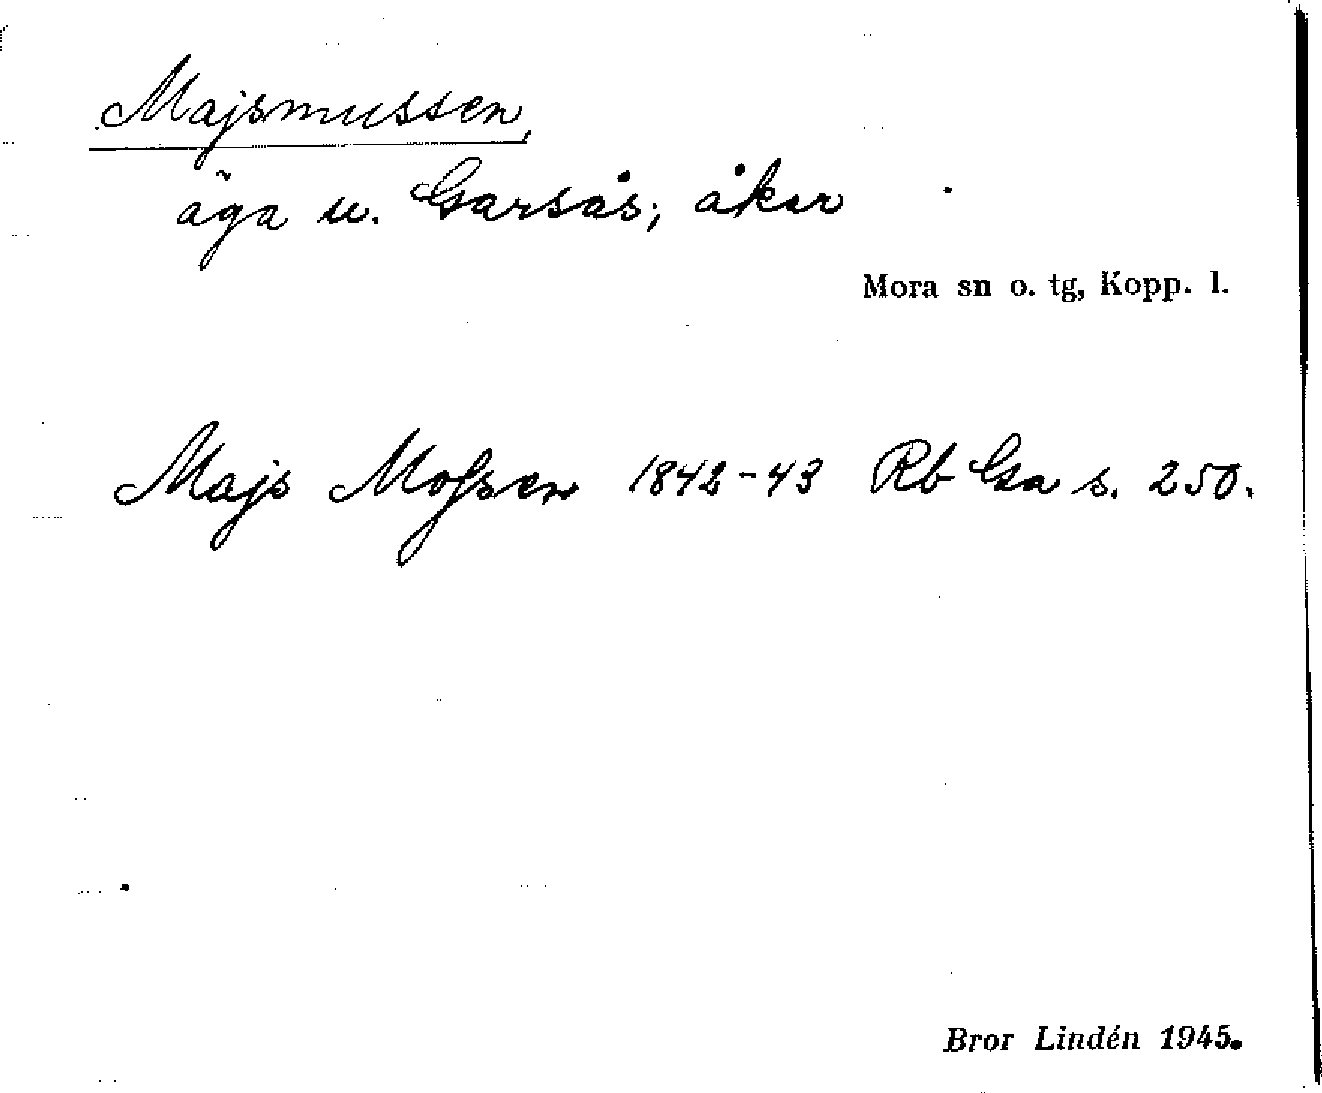 Majsmussen,
äga u. Garsås; åker
Mora sn o. tg, Kopp. l.
Majs Mossen 1842-43 Rb Gsa s. 250.
Bror Lindén 1945.